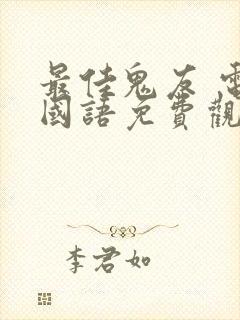 最佳鬼友 電
國語免費觀
李君如